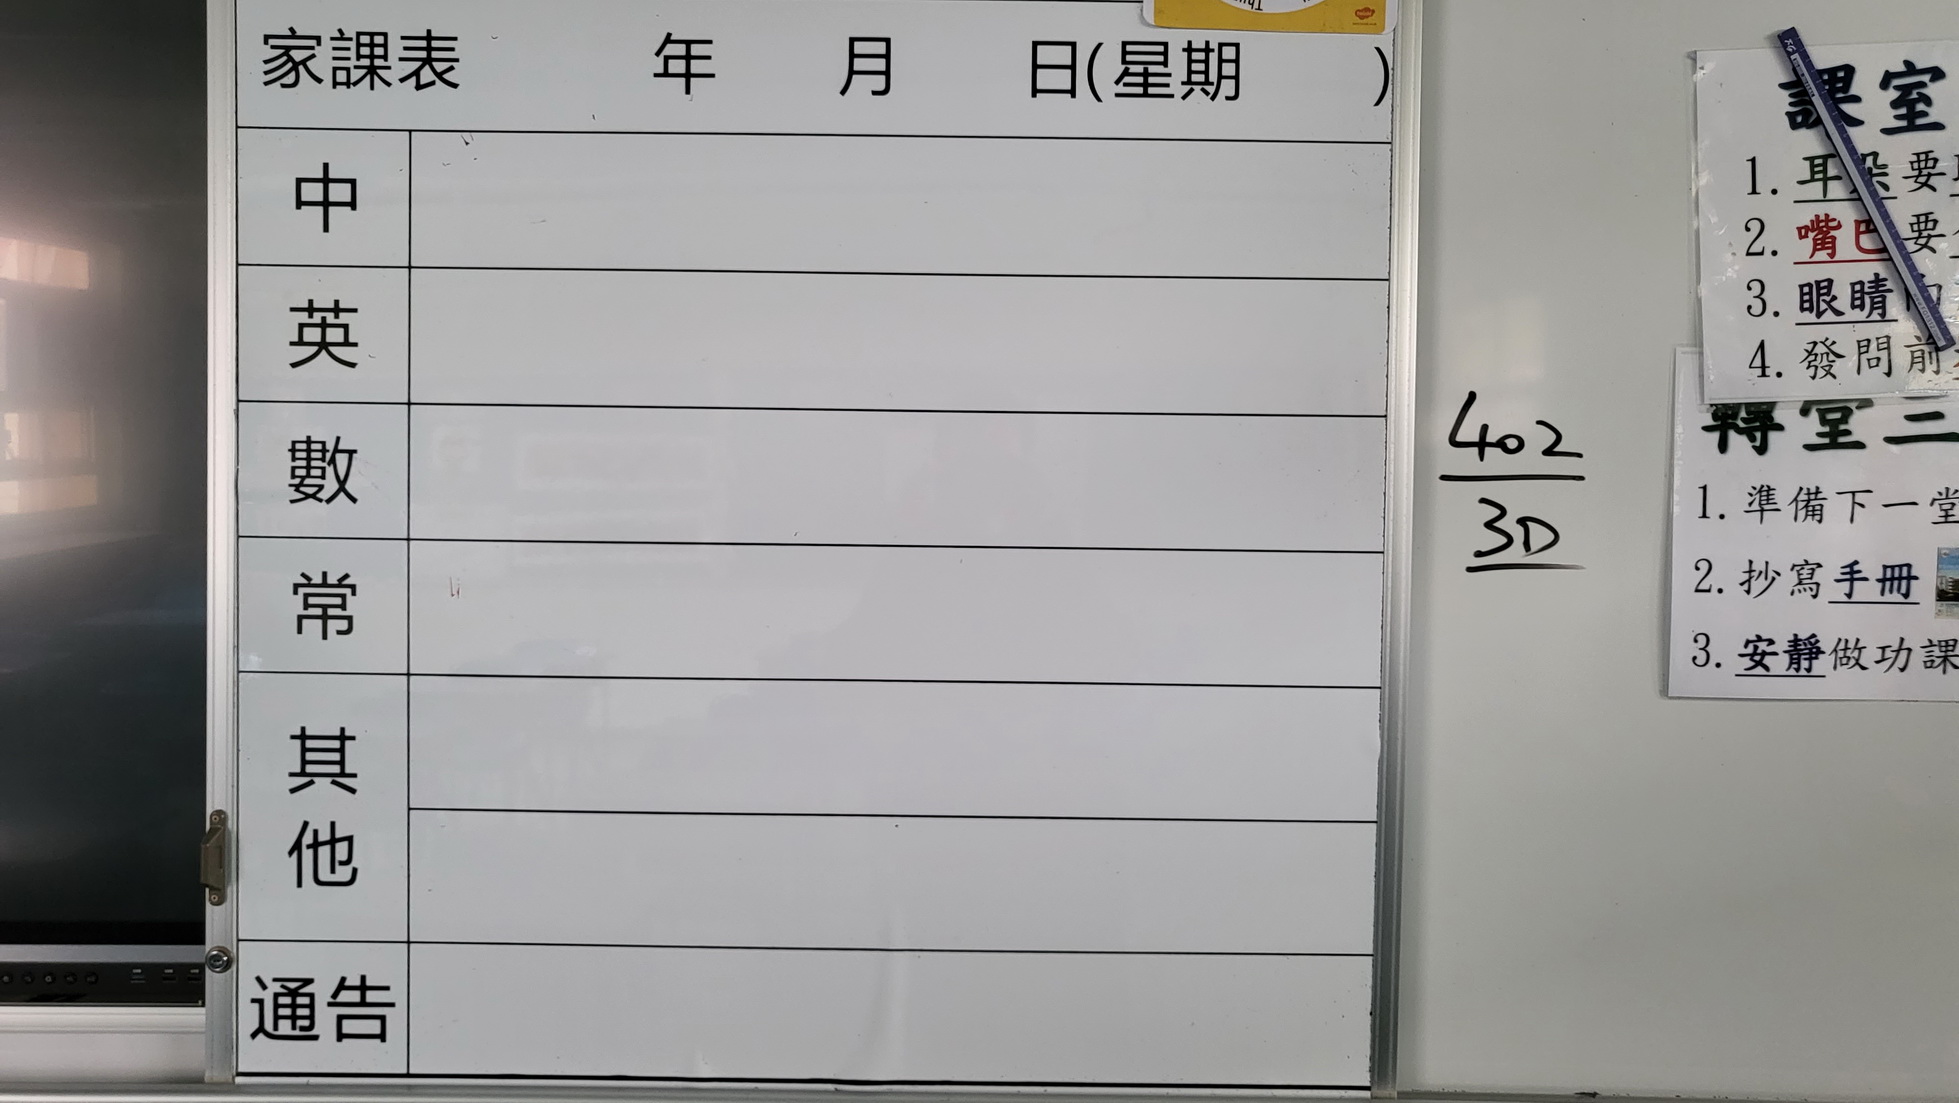 家課表 年 月 日(星期 )
中
英
數
常
其
他
通告
402
3D
課室
1. 耳朵要
2. 嘴巴要
3. 眼睛向
4. 發問前
轉堂三
1. 準備下一堂
2. 抄寫手冊
3. 安靜做功課